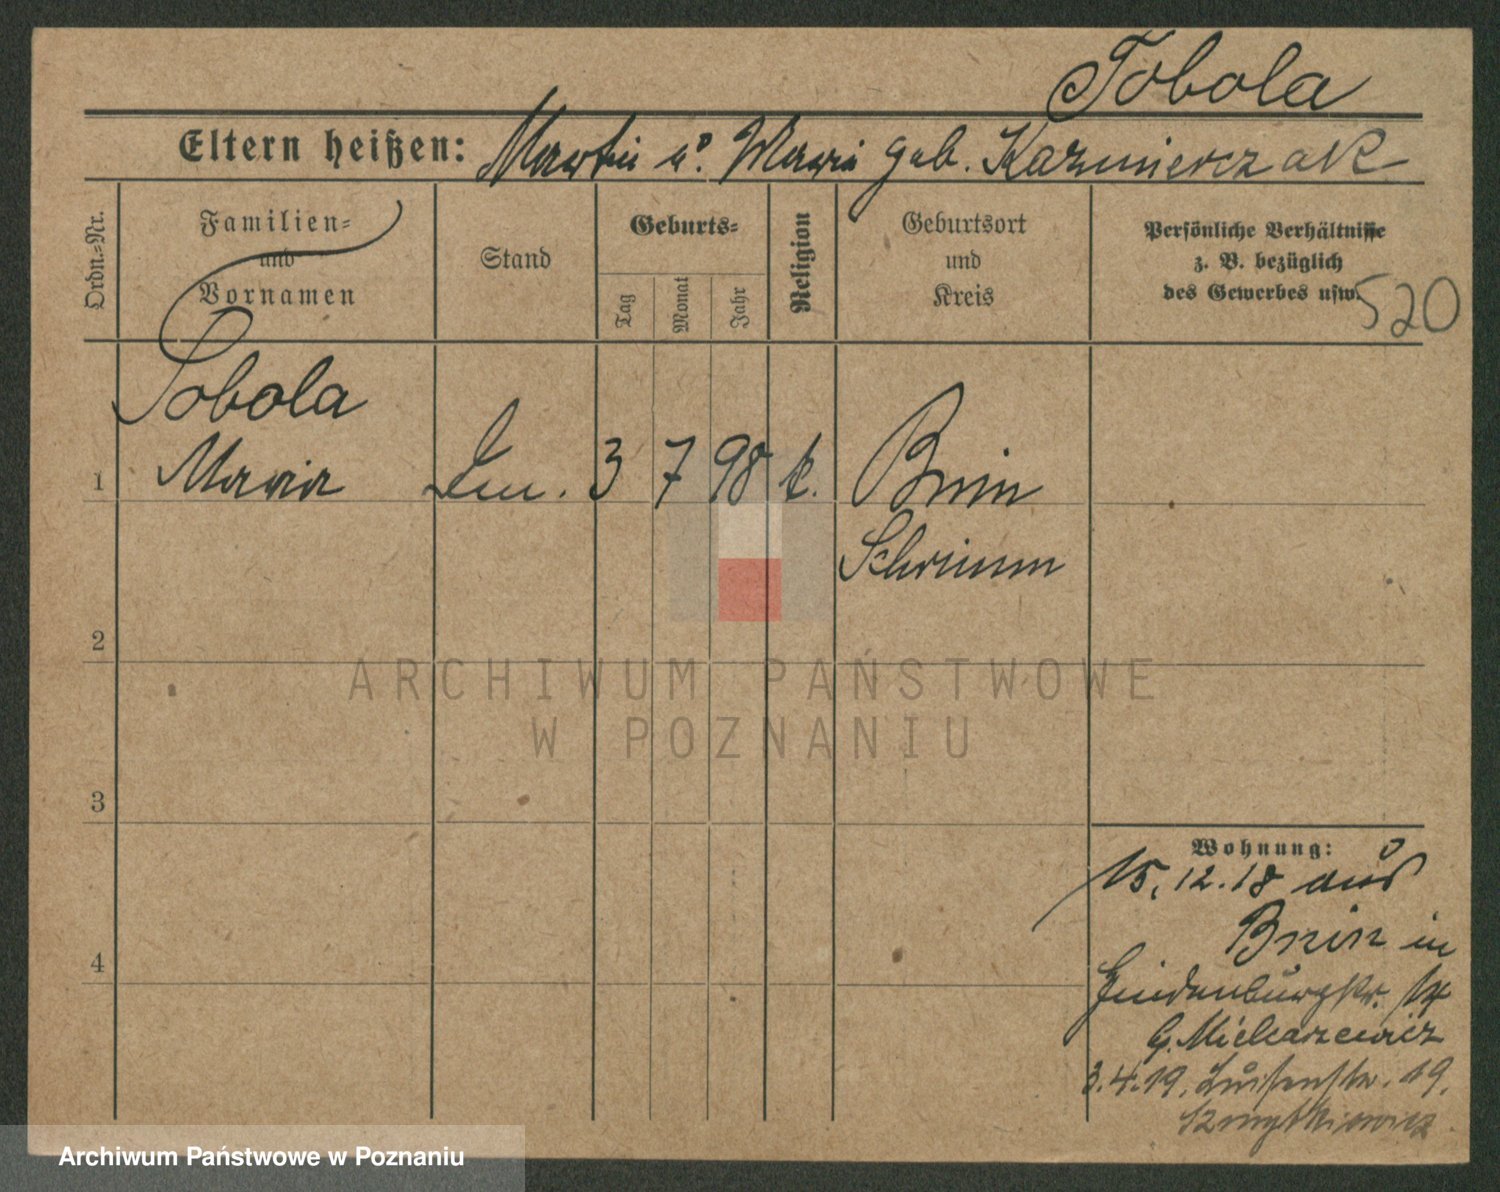 Tobola
Eltern heißen: Martin u. Maria geb. Kazmierczak
Ordn.-Nr.
Familien-
und
Vornamen
Stand
Geburts-
Tag
Monat
Jahr
Religion
Geburtsort
und
Kreis
Persönliche Verhältnisse
z. B. bezüglich
des Gewerbes usw.
520
Tobola
1 Maria 3 7 98 k. Bnin
Schrimm
2
3
4
Wohnung:
15.12.18 aus
Bnin in
Hindenburgstr.
b. Mielcarzewicz
3.4.19. Luisenstr. 19.
Szmytkiewicz
ARCHIWUM PAŃSTWOWE
W POZNANIU
Archiwum Państwowe w Poznaniu